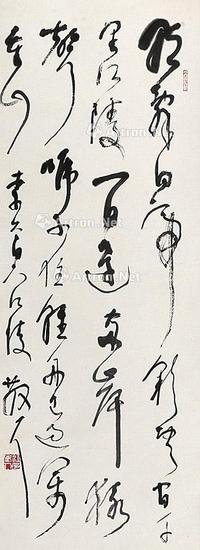 朝辭白帝彩雲間千
里江陵一日還兩岸猿
聲啼不住輕舟已過萬
重山 李太白江陵 散耳